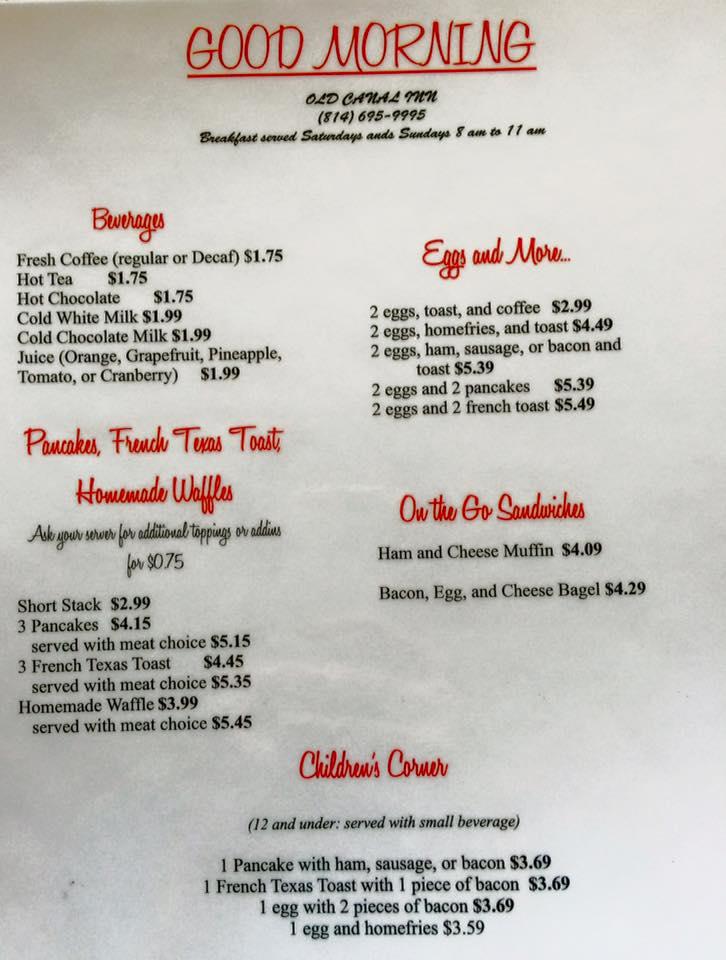 GOOD MORNING
OLD CANAL INN
(814) 695-9995
Breakfast served Saturdays ands Sundays 8 am to 11 am
Beverages
Fresh Coffee (regular or Decaf) $1.75
Hot Tea $1.75
Hot Chocolate $1.75
Cold White Milk $1.99
Cold Chocolate Milk $1.99
Juice (Orange, Grapefruit, Pineapple,
Tomato, or Cranberry) $1.99
Pancakes, French Texas Toast,
Homemade Waffles
Ask your server for additional toppings or addins
for $0.75
Short Stack $2.99
3 Pancakes $4.15
served with meat choice $5.15
3 French Texas Toast $4.45
served with meat choice $5.35
Homemade Waffle $3.99
served with meat choice $5.45
Eggs and More...
2 eggs, toast, and coffee $2.99
2 eggs, homefries, and toast $4.49
2 eggs, ham, sausage, or bacon and
toast $5.39
2 eggs and 2 pancakes $5.39
2 eggs and 2 french toast $5.49
On the Go Sandwiches
Ham and Cheese Muffin $4.09
Bacon, Egg, and Cheese Bagel $4.29
Children's Corner
(12 and under: served with small beverage)
1 Pancake with ham, sausage, or bacon $3.69
1 French Texas Toast with 1 piece of bacon $3.69
1 egg with 2 pieces of bacon $3.69
1 egg and homefries $3.59